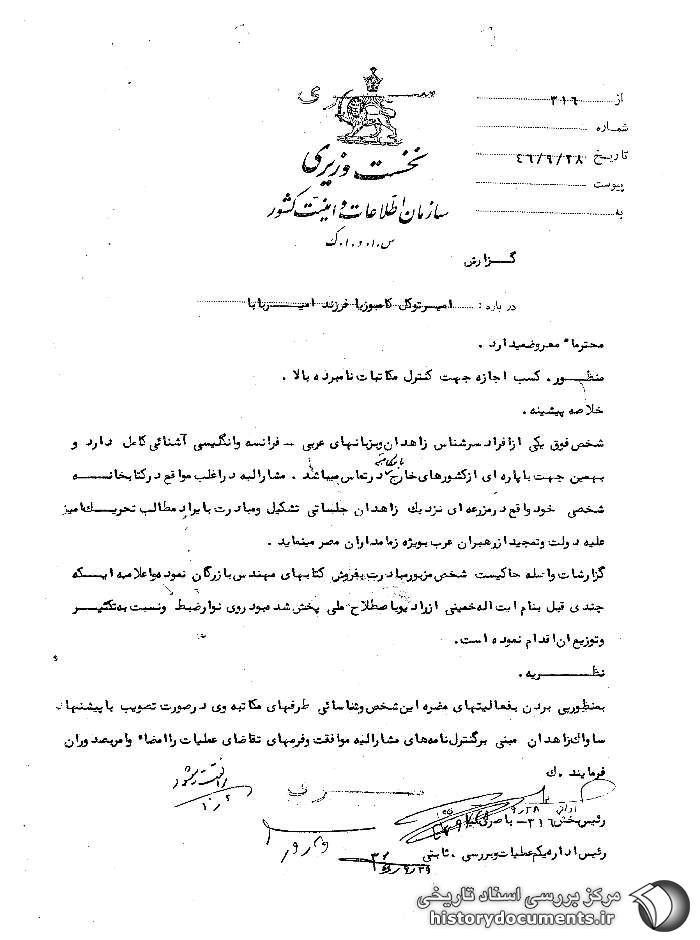 سری
از ۳۱۶
شماره
تاریخ ۴۶/۹/۲۸
پیوست
به
نخست وزیری
سازمان اطلاعات و امنیت کشور
س.ا.و.ا.ک
گزارش
درباره : امیرتوکل کامبوزیا فرزند امیربابا
محترماً معروضمیدارد .
منظور . کسب اجازه جهت کنترل مکاتبات نامبرده بالا .
خلاصه پیشینه .
شخص فوق یکی ازافراد سرشناس زاهدان وبزبانهای عربی - فرانسه وانگلیسی آشنائی کامل دارد و
بهمین جهت باپاره ای ازکشورهای خارج بامکاتبه درتماس میباشد . مشارالیه دراغلب مواقع درکتابخانه
شخصی خود واقع درمزرعه ای نزدیک زاهدان جلساتی تشکیل ومبادرت بایراد مطالب تحریک امیز
علیه دولت وتمجید ازرهبران عرب بویژه زمامداران مصر مینماید .
گزارشات واصله حاکیست شخص مزبورمبادرت بفروش کتابهای مهندس بازرگان نموده واعلامیه ایکه
چندی قبل بنام ایت اله خمینی ازرادیوباصطلاح ملی پخش شده بود روی نوارضبط ونسبت به تکثیر
وتوزیع ان اقدام نموده است.
نظریه .
بمنظورپی بردن بفعالیتهای مضره این شخص وشناسائی طرفهای مکاتبه وی درصورت تصویب باپیشنهاد
ساواک زاهدان مبنی برکنترل نامه های مشارالیه موافقت وفرمهای تقاضای عملیات راامضاء وامربصدوران
فرمایند . ک
رئیس بخش ۳۱۶ -
رئیس اداره یکم عملیات وبررسی . ثابتی
مرکز بررسی اسناد تاریخی
historydocuments.ir